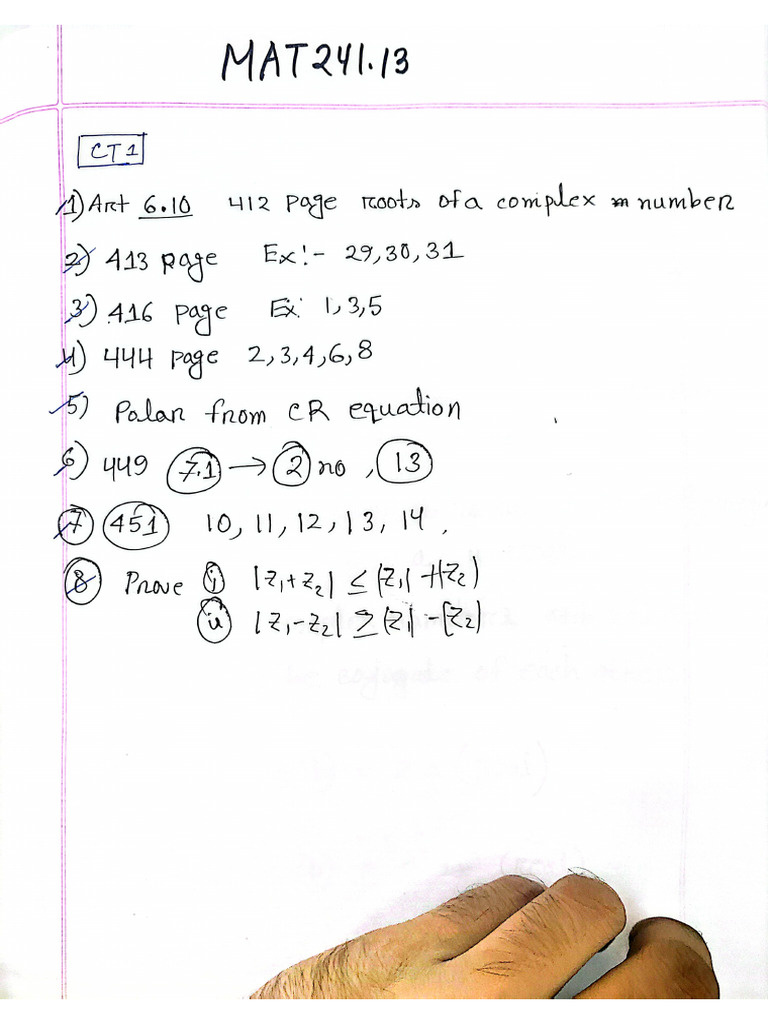 MAT241.13
CT1
1) Art 6.10 412 page roots of a complex number
2) 413 page Ex:- 29,30,31
3) 416 page Ex: 1,3,5
4) 444 page 2,3,4,6,8
5) Polar from CR equation
6) 449 7.1 → 2 no, 13
7 451 10, 11, 12, 13, 14,
8 Prove i |z₁+z₂| ≤ |z₁| + |z₂|
ii |z₁-z₂| ≥ |z₁| - |z₂|